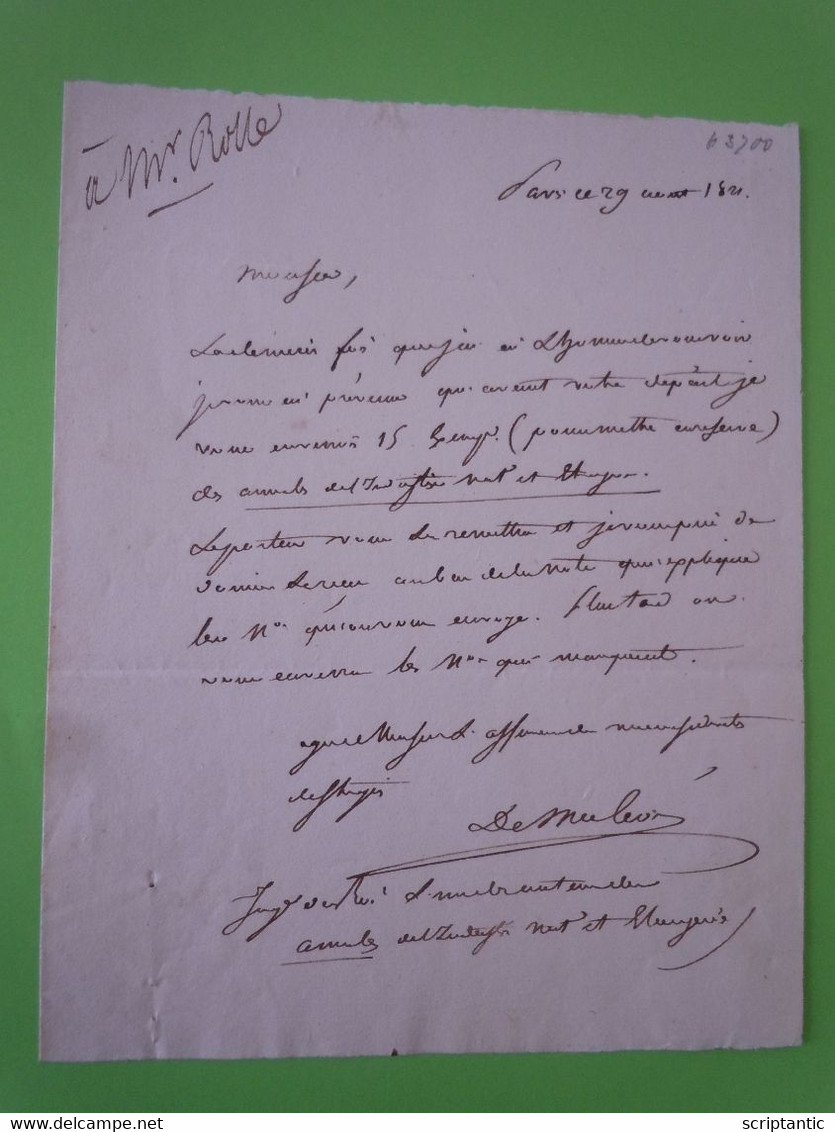 à Mr. Rolle
63700
Paris ce 29 aout 1821.
Monsieur,
La derniere fois que j'ai eu L'honneur de vous voir
je vous ai prévenu qu'avant votre départ je
vous enverrois 15 exempl. (pour mettre en reserve)
des annales de l'Industrie Natle et Etrangere.
Le porteur vous Les remettra et je vous prie de
donner Le recu au bas de la note qui explique
les Nos qu'on vous envoye. Plus tard on
vous enverra les Nos qui manquent.
agréez Monsieur L'assurance de mes sentiments
distingués
De Moléon
Ingr du Roi L'un des auteurs des
annales de l'Industrie Natle et Etrangere
scriptantic